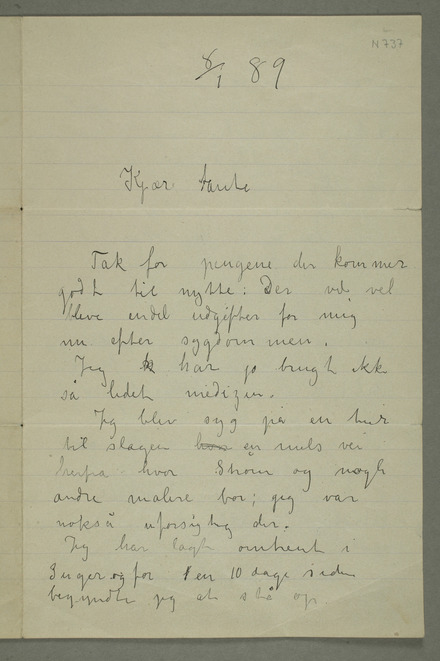 N 737
8/1 89
Kjære tante
Tak for pengene der kommer
godt til nytte. Der vil vel
bleve endel udgifter for mig
nu efter sygdommen.
Jeg har jo brugt ikke
så lidet medizin.
Jeg blev syg på en tur
til slagen en mils vei
herfra hvor Strøm og nogle
andre malere bor; jeg var
nokså uforsigtig der.
Jeg har lagt omtrent i
3 uger og for en 10 dage siden
begyndte jeg at stå op.